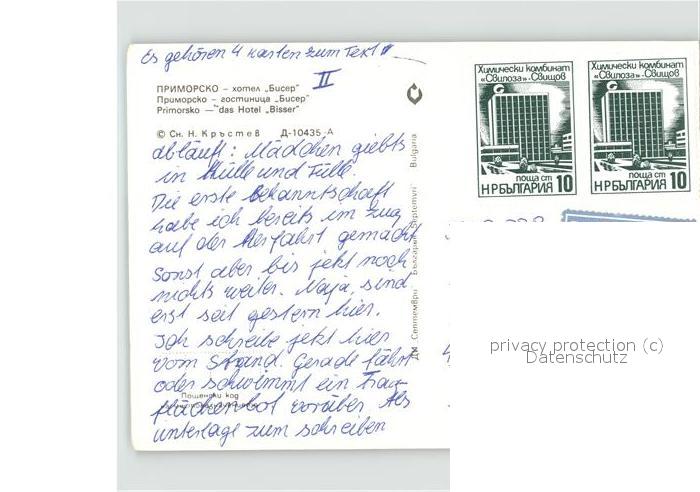 Es gehören 4 Karten zum Text
II
ПРИМОРСКО – хотел „Бисер"
Приморско – гостиница „Бисер"
Primorsko — das Hotel „Bisser"
© Сн. Н. Кръстев Д-10435-А
abläuft: Mädchen giebts
in Hülle und Fülle.
Die erste Bekanntschaft
habe ich bereits im Zug
auf der Herfahrt gemacht
Sonst aber bis jetzt noch
nichts weiter. Naja, sind
erst seit gestern hier.
Ich schreibe jetzt hier
vom Strand. Gerade fährt
oder schwimmt ein Trag-
flächenbot vorüber. Als
unterlage zum schreiben
Пощенски код
ДИ Септември Български Septemvri Bulgaria
Химически комбинат
«Свилоза»-Свищов
поща ст
НРБЪЛГАРИЯ 10
Химически комбинат
«Свилоза»-Свищов
поща ст
НРБЪЛГАРИЯ 10
privacy protection (c)
Datenschutz